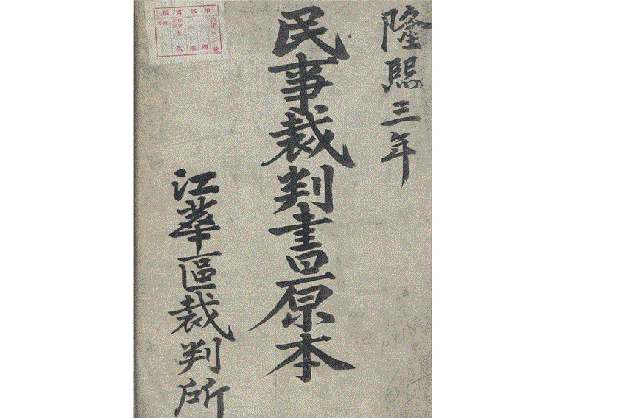 隆熙三年
民事裁判書原本
江華區裁判所